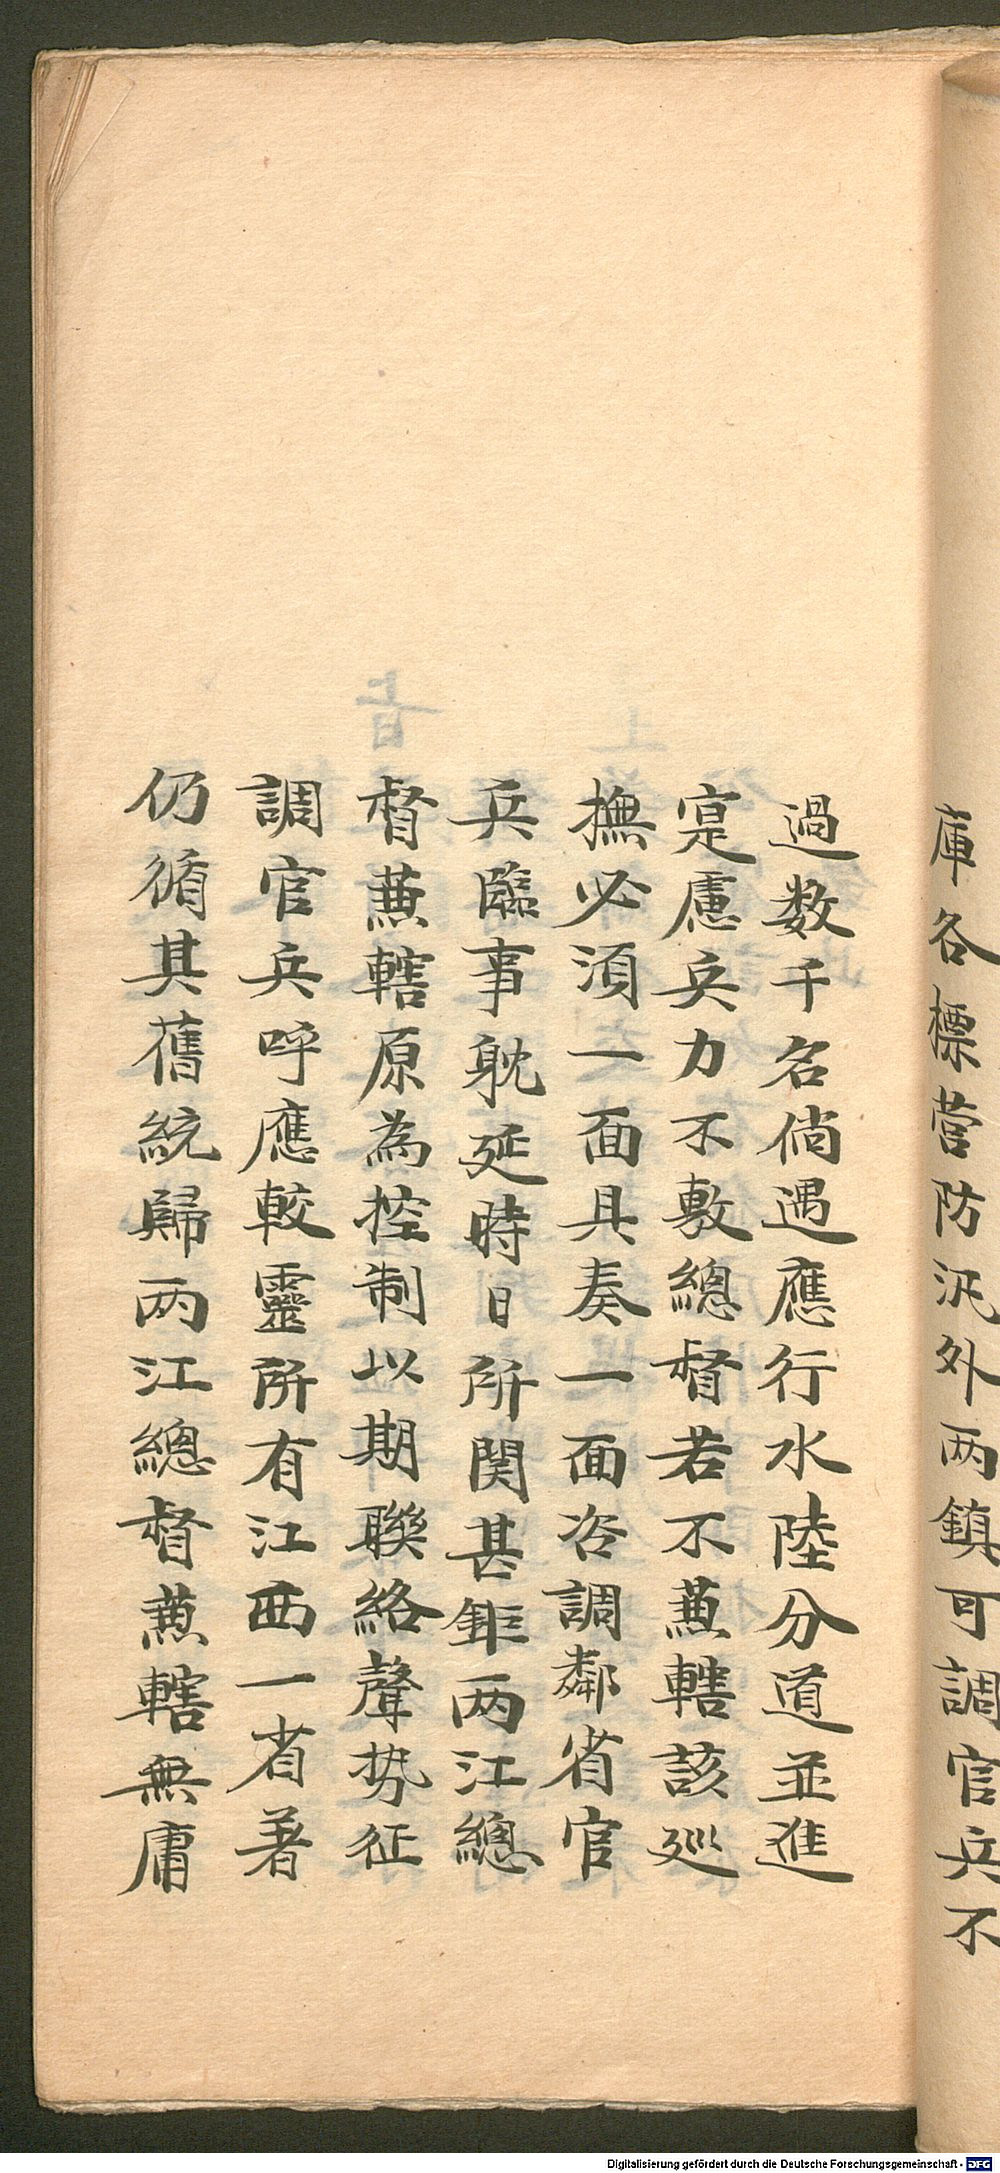 庫各標營防汛外両鎮可調官兵不
過数千名倘遇應行水陸分道並進
寔慮兵力不敷總督若不蕪轄該廵
撫必須一面具奏一面咨調鄰省官
兵臨事躭延時日所関甚鉅両江總
督蕪轄原為控制以期聯絡聲势征
調官兵呼應較靈所有江西一省著
仍循其舊統歸両江總督蕪轄無庸
Digitalisierung gefördert durch die Deutsche Forschungsgemeinschaft - DFG